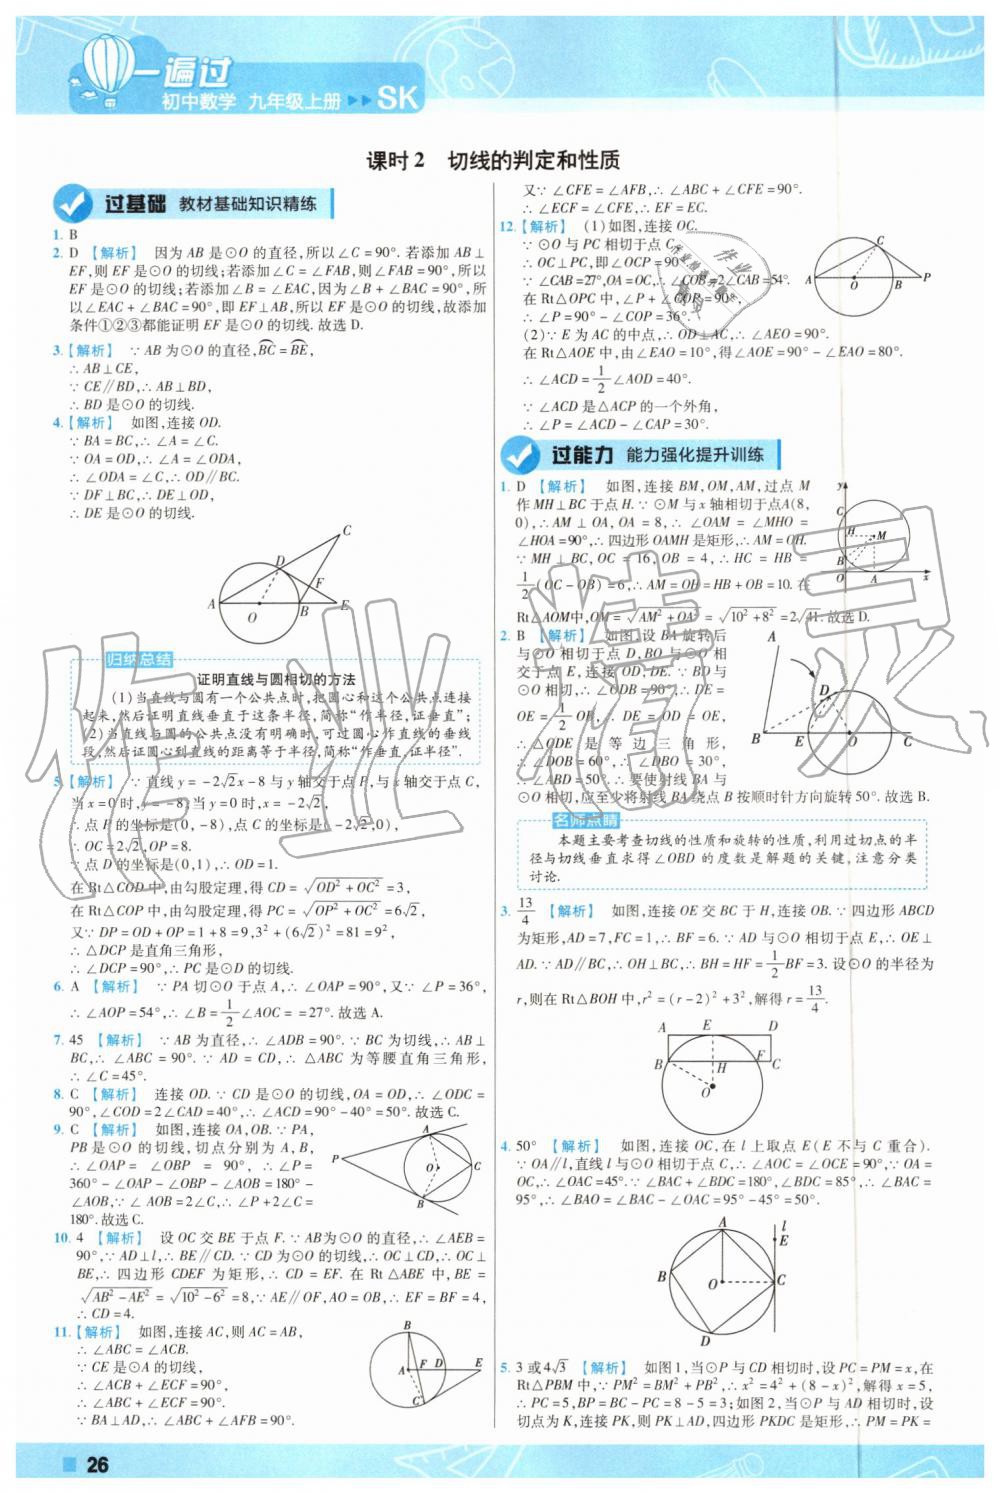 一遍过
初中数学 九年级上册 ▶▶ SK
课时2 切线的判定和性质
过基础 教材基础知识精练
1. B
2. D 【解析】 因为 AB 是⊙O 的直径,所以∠C=90°. 若添加 AB⊥
EF,则 EF 是⊙O 的切线;若添加∠C=∠FAB,则∠FAB=90°,所以
EF 是⊙O 的切线;若添加∠B=∠EAC,因为∠B+∠BAC=90°,所
以∠EAC+∠BAC=90°,即 EF⊥AB,所以 EF 是⊙O 的切线,故添加
条件①②③都能证明 EF 是⊙O 的切线. 故选 D.
3.【解析】 ∵AB 为⊙O 的直径,BC=BE,
∴AB⊥CE,
∵CE∥BD,∴AB⊥BD,
∴BD 是⊙O 的切线.
4.【解析】 如图,连接 OD.
∵BA=BC,∴∠A=∠C.
∵OA=OD,∴∠A=∠ODA,
∴∠ODA=∠C,∴OD∥BC.
∵DF⊥BC,∴DE⊥OD,
∴DE 是⊙O 的切线.
C
D
F
A
O
B
E
归纳总结
证明直线与圆相切的方法
(1)当直线与圆有一个公共点时,把圆心和这个公共点连接
起来,然后证明直线垂直于这条半径,简称“作半径,证垂直”;
(2)当直线与圆的公共点没有明确时,可过圆心作直线的垂线
段,然后证圆心到直线的距离等于半径,简称“作垂直,证半径”.
5.【解析】 ∵直线 y=-2√2x-8 与 y 轴交于点 P,与 x 轴交于点 C,
当 x=0 时,y=-8;当 y=0 时,x=-2√2,
∴点 P 的坐标是(0,-8),点 C 的坐标是(-2√2,0),
∴OC=2√2,OP=8.
∵点 D 的坐标是(0,1),∴OD=1.
在 Rt△COD 中,由勾股定理,得 CD=√(OD²+OC²)=3,
在 Rt△COP 中,由勾股定理,得 PC=√(OP²+OC²)=6√2,
又∵DP=OD+OP=1+8=9,3²+(6√2)²=81=9²,
∴△DCP 是直角三角形,
∴∠DCP=90°,∴PC 是⊙D 的切线.
6. A 【解析】 ∵PA 切⊙O 于点 A,∴∠OAP=90°,又∵∠P=36°,
∴∠AOP=54°,∴∠B=1/2∠AOC==27°. 故选 A.
7. 45 【解析】 ∵AB 为直径,∴∠ADB=90°. ∵BC 为切线,∴AB⊥
BC,∴∠ABC=90°. ∵AD=CD,∴△ABC 为等腰直角三角形,
∴∠C=45°.
8. C 【解析】 连接 OD. ∵CD 是⊙O 的切线,OA=OD,∴∠ODC=
90°,∠COD=2∠CAD=40°,∴∠ACD=90°-40°=50°. 故选 C.
9. C 【解析】 如图,连接 OA,OB. ∵PA,
PB 是⊙O 的切线,切点分别为 A,B,
∴∠OAP=∠OBP=90°,∴∠P=
360°-∠OAP-∠OBP-∠AOB=180°-
∠AOB,∵∠AOB=2∠C,∴∠P+2∠C=
180°. 故选 C.
A
P
O
C
B
10. 4 【解析】 设 OC 交 BE 于点 F. ∵AB为⊙O 的直径,∴∠AEB=
90°,∵AD⊥l,∴BE∥CD. ∵CD 为⊙O 的切线,∴OC⊥CD,∴OC⊥
BE,∴四边形 CDEF 为矩形,∴CD=EF. 在 Rt△ABE 中,BE=
√(AB²-AE²)=√(10²-6²)=8,∵AE∥OF,AO=OB,∴EF=BF=4,
∴CD=4.
11.【解析】 如图,连接 AC,则 AC=AB,
∴∠ABC=∠ACB.
∵CE 是⊙A 的切线,
∴∠ACB+∠ECF=90°,
∵BA⊥AD,∴∠ABC+∠AFB=90°.
B
A
F
D
E
C
又∵∠CFE=∠AFB,∴∠ABC+∠CFE=90°.
∴∠ECF=∠CFE,∴EF=EC.
12.【解析】 (1)如图,连接 OC.
∵⊙O 与 PC 相切于点 C,
∴OC⊥PC,即∠OCP=90°.
∵∠CAB=27°,OA=OC,∴∠COB=2∠CAB=54°.
在 Rt△OPC 中,∠P+∠COP=90°,
∴∠P=90°-∠COP=36°.
(2)∵E 为 AC 的中点,∴OD⊥AC,∴∠AEO=90°.
在 Rt△AOE 中,由∠EAO=10°,得∠AOE=90°-∠EAO=80°.
∴∠ACD=1/2∠AOD=40°.
∵∠ACD 是△ACP 的一个外角,
∴∠P=∠ACD-∠CAP=30°.
C
A
O
B
P
过能力 能力强化提升训练
1. D 【解析】 如图,连接 BM,OM,AM,过点 M
作 MH⊥BC 于点 H. ∵⊙M 与 x 轴相切于点A(8,
0),∴AM⊥OA,OA=8,∴∠OAM=∠MHO=
∠HOA=90°,∴四边形 OAMH 是矩形,∴AM=OH.
∵MH⊥BC,OC=16,OB=4,∴HC=HB=
1/2(OC-OB)=6,∴AM=OH=HB+OB=10. 在
Rt△AOM中,OM=√(AM²+OA²)=√(10²+8²)=2√41. 故选 D.
y
C
H
M
B
O
A
x
2. B 【解析】 如图,设 BA 旋转后
与⊙O 相切于点 D,BO 与⊙O 相
交于点 E,连接 OD,DE. ∵BD 与
⊙O 相切,∴∠ODB=90°,∵DE=
OE=1/2OB,∴DE=OD=OE,
∴△ODE 是等边三角形,
∴∠DOB=60°,∴∠DBO=30°,
∴∠ABD=50°,∴要使射线 BA 与
⊙O 相切,应至少将射线 BA 绕点 B 按顺时针方向旋转50°. 故选 B.
A
D
B
E
O
C
名师点睛
本题主要考查切线的性质和旋转的性质,利用过切点的半
径与切线垂直求得∠OBD 的度数是解题的关键,注意分类
讨论.
3. 13/4 【解析】 如图,连接 OE 交 BC 于 H,连接 OB. ∵四边形 ABCD
为矩形,AD=7,FC=1,∴BF=6. ∵AD 与⊙O 相切于点 E,∴OE⊥
AD. ∵AD∥BC,∴OH⊥BC,∴BH=HF=1/2BF=3. 设⊙O 的半径为
r,则在 Rt△BOH 中,r²=(r-2)²+3²,解得 r=13/4.
A
E
D
B
H
F
C
O
4. 50° 【解析】 如图,连接 OC,在 l 上取点 E(E 不与 C 重合).
∵OA∥l,直线 l 与⊙O 相切于点 C,∴∠AOC=∠OCE=90°,∵OA=
OC,∴∠OAC=45°. ∵∠BAC+∠BDC=180°,∠BDC=85°,∴∠BAC=
95°,∴∠BAO=∠BAC-∠OAC=95°-45°=50°.
A
l
E
B
O
C
D
5. 3 或4√3 【解析】 如图 1,当⊙P 与 CD 相切时,设 PC=PM=x,在
Rt△PBM 中,∵PM²=BM²+PB²,∴x²=4²+(8-x)²,解得 x=5,
∴PC=5,BP=BC-PC=8-5=3;如图 2,当⊙P 与 AD 相切时,设
切点为 K,连接 PK,则 PK⊥AD,四边形 PKDC 是矩形,∴PM=PK=
26
作业精灵